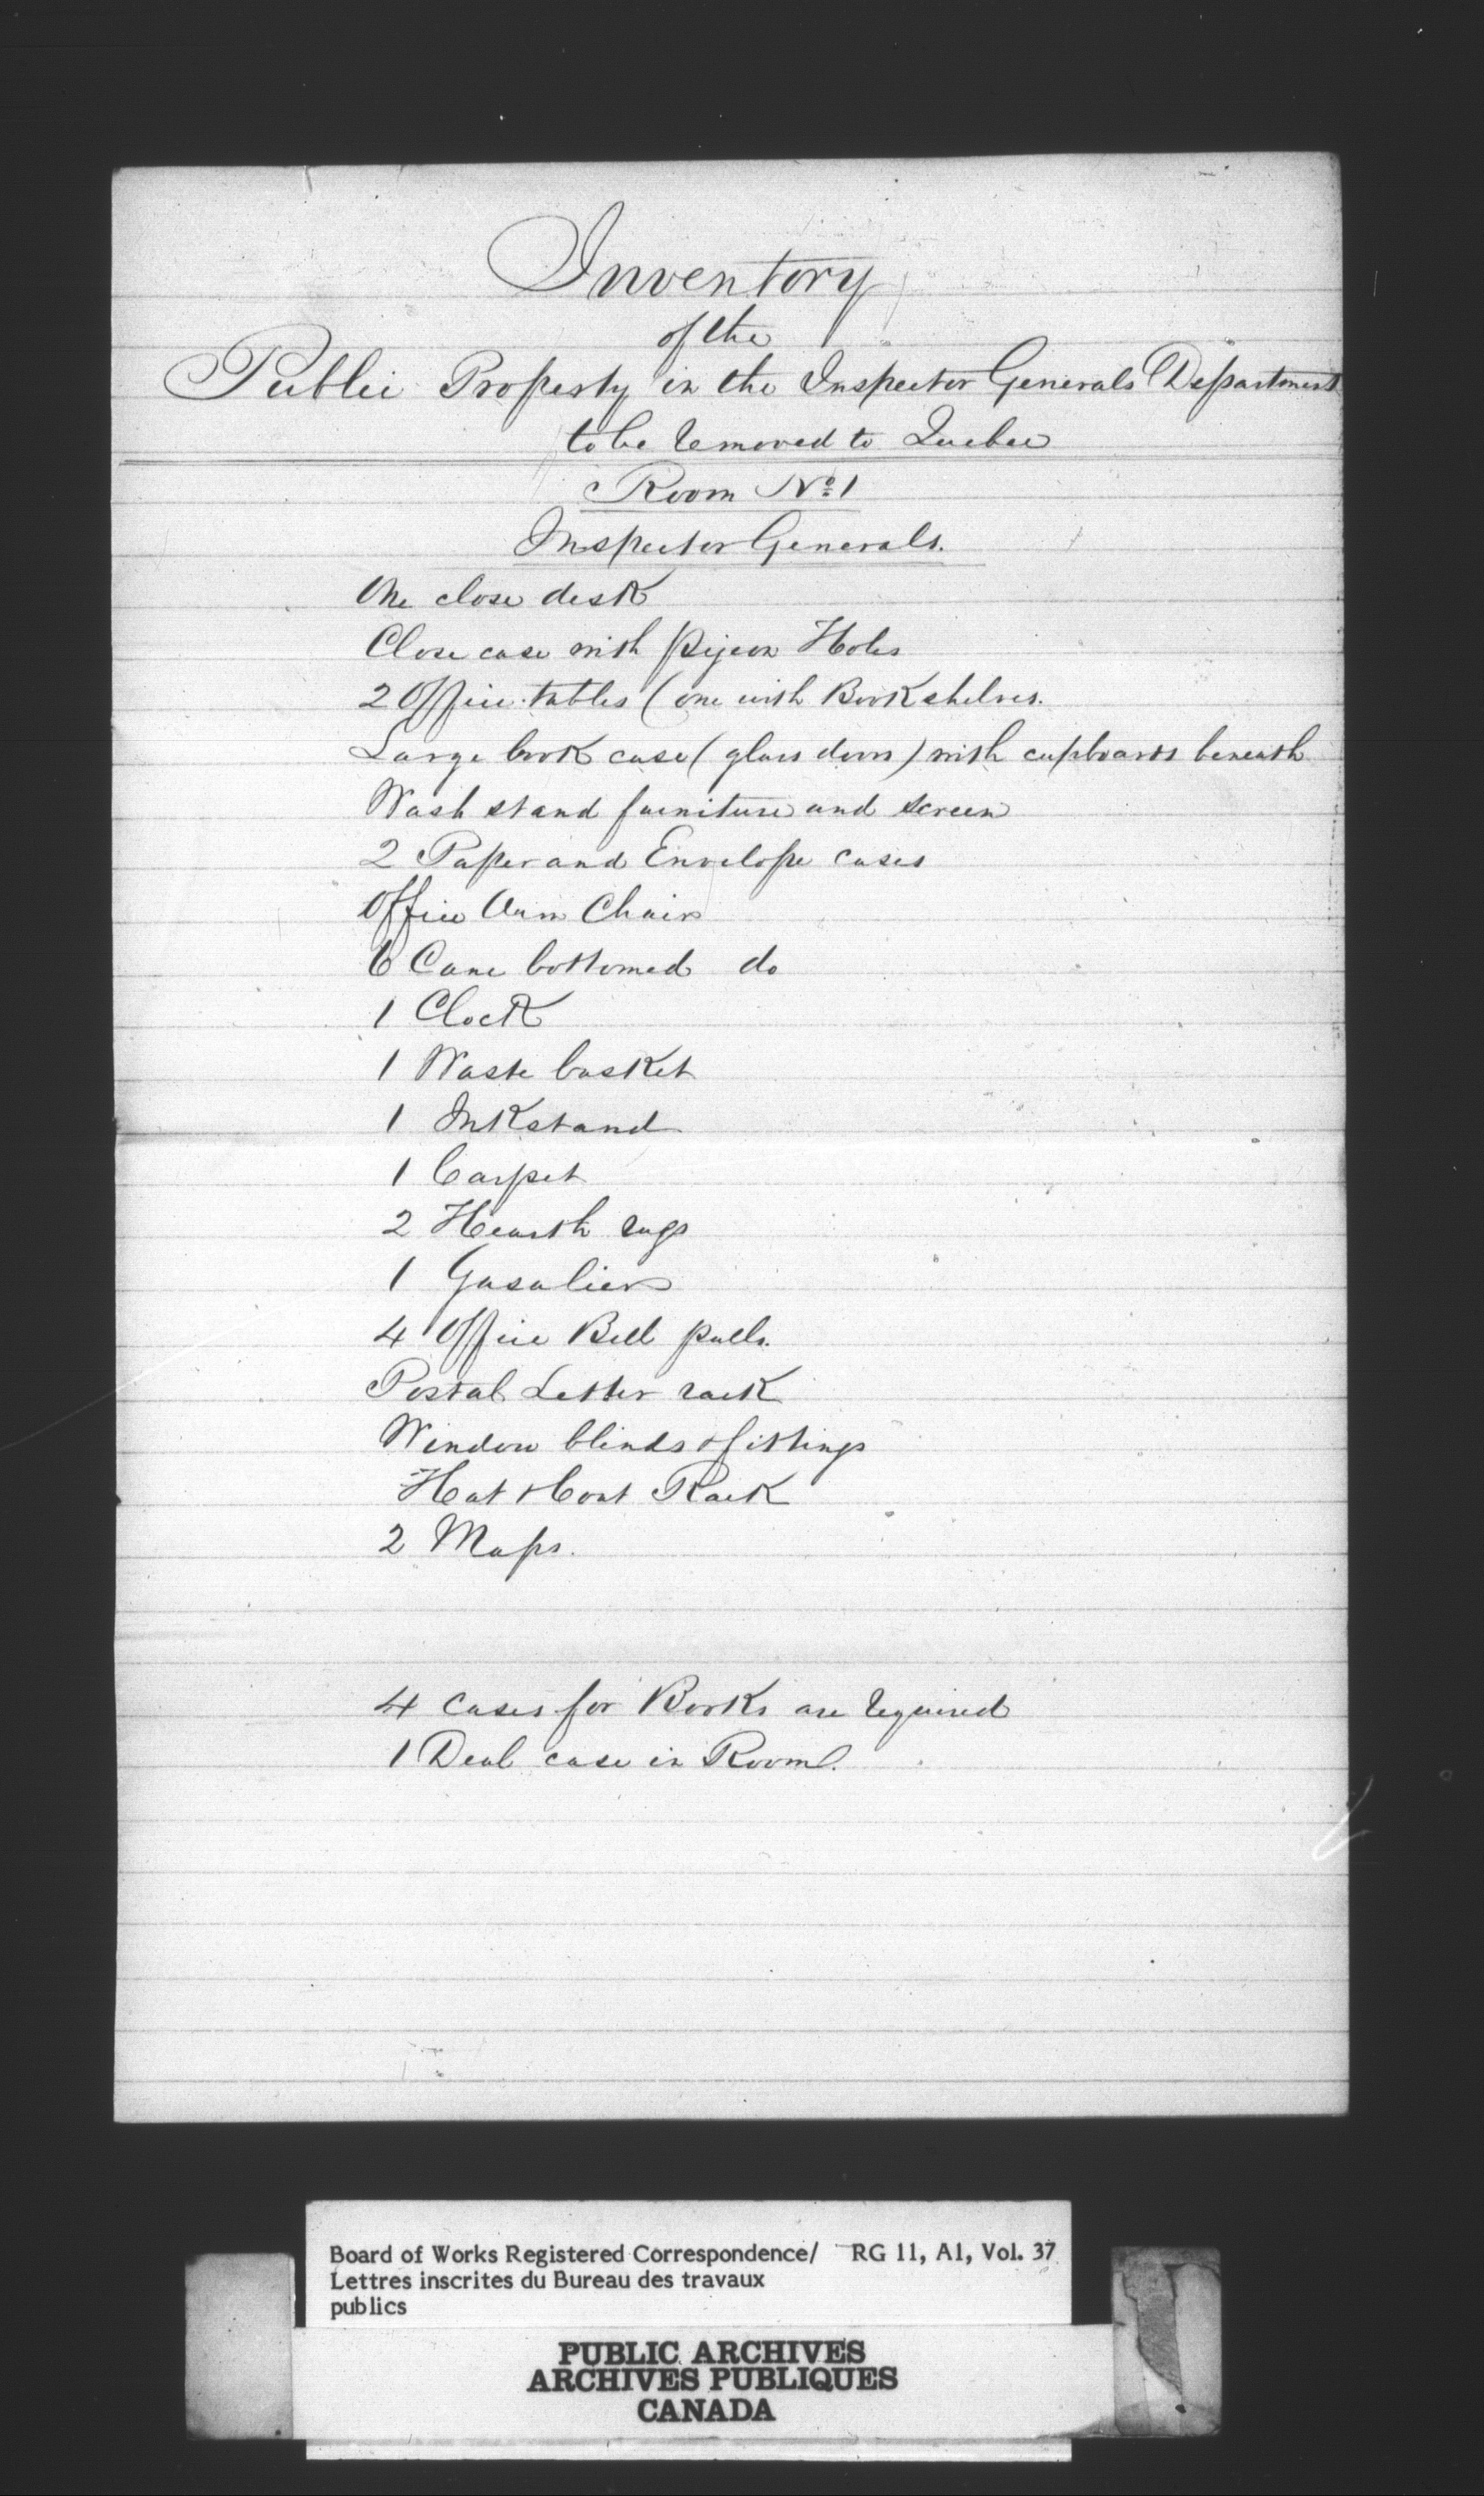 Inventory
of the
Public Property in the Inspector Generals Department
to be removed to Quebec
Room No. 1
Inspector Generals.
One close desk
Close case with pigeon Holes
2 Office tables (one with Book shelves.
Large book case (glass doors) with cupboards beneath
Wash stand furniture and screen
2 Paper and Envelope cases
Office Arm Chair
6 Cane bottomed do
1 Clock
1 Waste basket
1 Inkstand
1 Carpet
2 Hearth rugs
1 Gasalier
4 Office Bell pulls.
Postal Letter rack
Window blinds & fittings
Hat & Coat Rack
2 Maps.
4 Cases for Books are required
1 Deal case in Room.
Board of Works Registered Correspondence/ RG 11, A1, Vol. 37
Lettres inscrites du Bureau des travaux
publics
PUBLIC ARCHIVES
ARCHIVES PUBLIQUES
CANADA